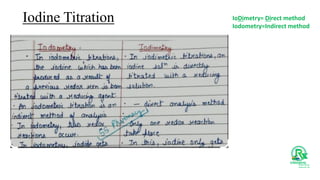 Iodine Titration
IoDimetry= Direct method
Iodometry=Indirect method
Iodometry
Iodimetry
• In iodometric titrations,
the iodine which has been
produced as a result of
a previous redox rxn is
titrated with a reducing agent
• An iodometric titration is an
indirect method of analysis
• In iodometry, two redox
reactions occur.
• In iodometry, iodine gets
• In iodimetric titrations, an
iodine solⁿ is directly
titrated with a reducing
solution.
• — direct analysis method
• only one redox reaction
take place
• In this, iodine only gets
GS Pharmacy